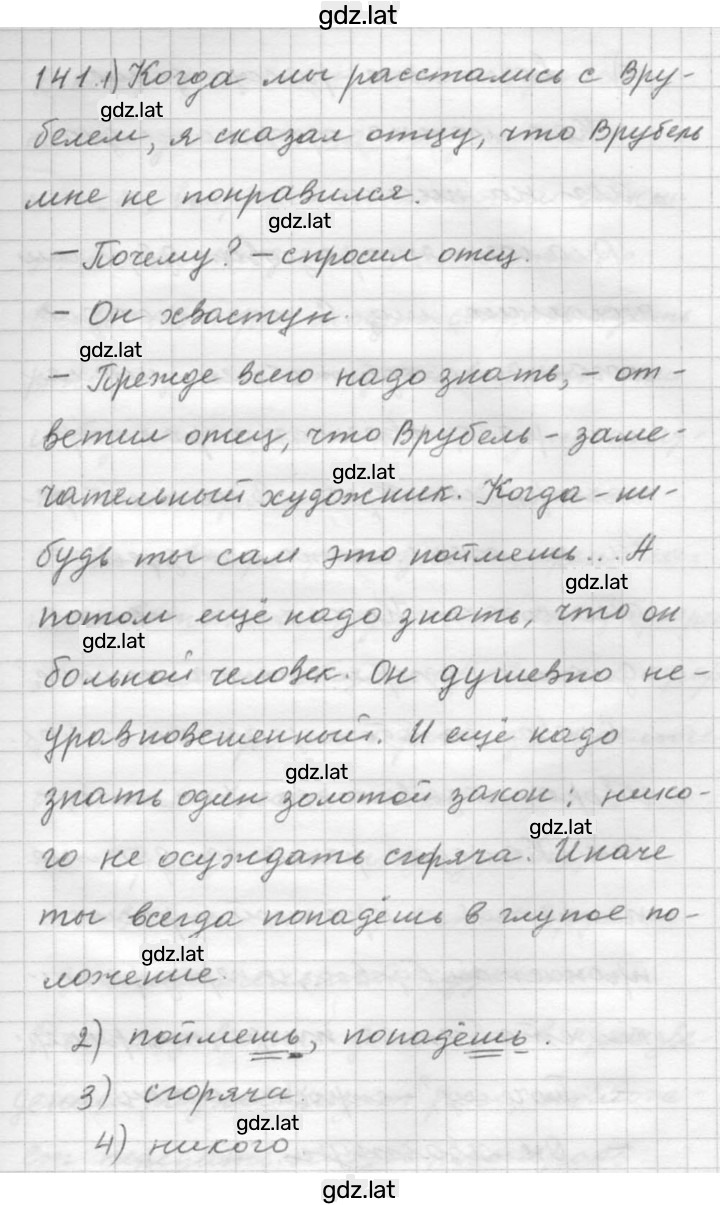 gdz.lat
141.1) Когда мы расстались с Вру-
gdz.lat
белем, я сказал отцу, что Врубель
мне не понравился.
gdz.lat
– Почему? – спросил отец.
– Он хвастун.
gdz.lat
– Прежде всего надо знать, – от-
ветил отец, что Врубель – заме-
gdz.lat
чательный художник. Когда-ни-
будь ты сам это поймешь... А
gdz.lat
потом ещё надо знать, что он
gdz.lat
больной человек. Он душевно не-
уравновешенный. И ещё надо
gdz.lat
знать один золотой закон: нико-
gdz.lat
го не осуждать сгоряча. Иначе
ты всегда попадёшь в глупое по-
gdz.lat
ложение
2) поймешь, попадёшь.
3) сгоряча.
gdz.lat
4) никого
gdz.lat